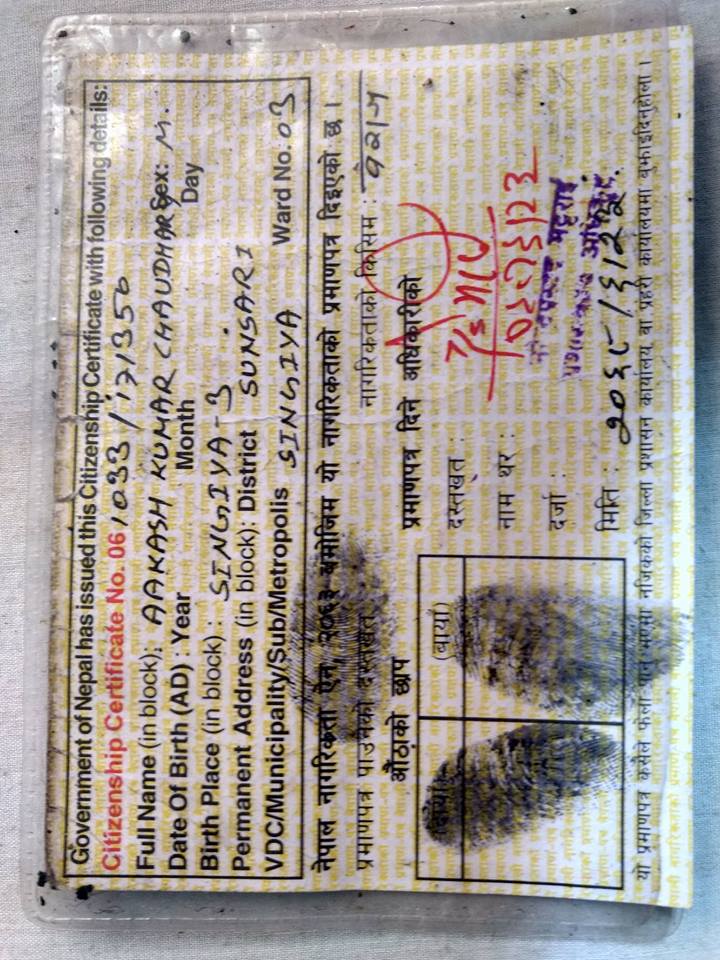 Government of Nepal has issued this Citizenship Certificate with following details:
Citizenship Certificate No. 06/033/171350
Full Name (in block): AAKASH KUMAR CHAUDHARY Sex: M.
Date Of Birth (AD) : Year Month Day
Birth Place (in block) : SINGIYA-3
Permanent Address (in block): District SUNSARI
VDC/Municipality/Sub/Metropolis SINGIYA Ward No. 03
नेपाल नागरिकता ऐन, २०६३ बमोजिम यो नागरिकताको प्रमाणपत्र दिइएको छ ।
प्रमाणपत्र पाउनेको दस्तखत
नागरिकताको किसिम : वंशज
औंठाको छाप
प्रमाणपत्र दिने अधिकारीको
(दायाँ) (बायाँ)
दस्तखत :
नाम थर :
दर्जा : भट्टराई
मिति :
यो प्रमाणपत्र कसैले फेला पारे नजिकको जिल्ला प्रशासन कार्यालय वा प्रहरी कार्यालयमा बुझाइदिनुहोला ।